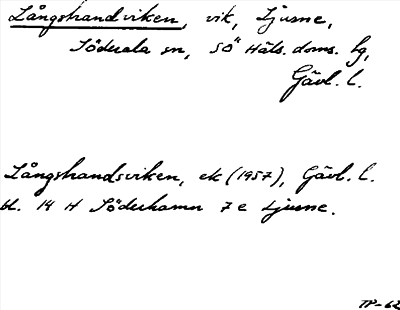 Långshandviken, vik, Ljusne,
Söderala sn, SÖ Häls. doms. lg,
Gävl. l.
Långshandsviken, ek (1957), Gävl. l.
bl. 14 H Söderhamn 7 e Ljusne.
TP-62